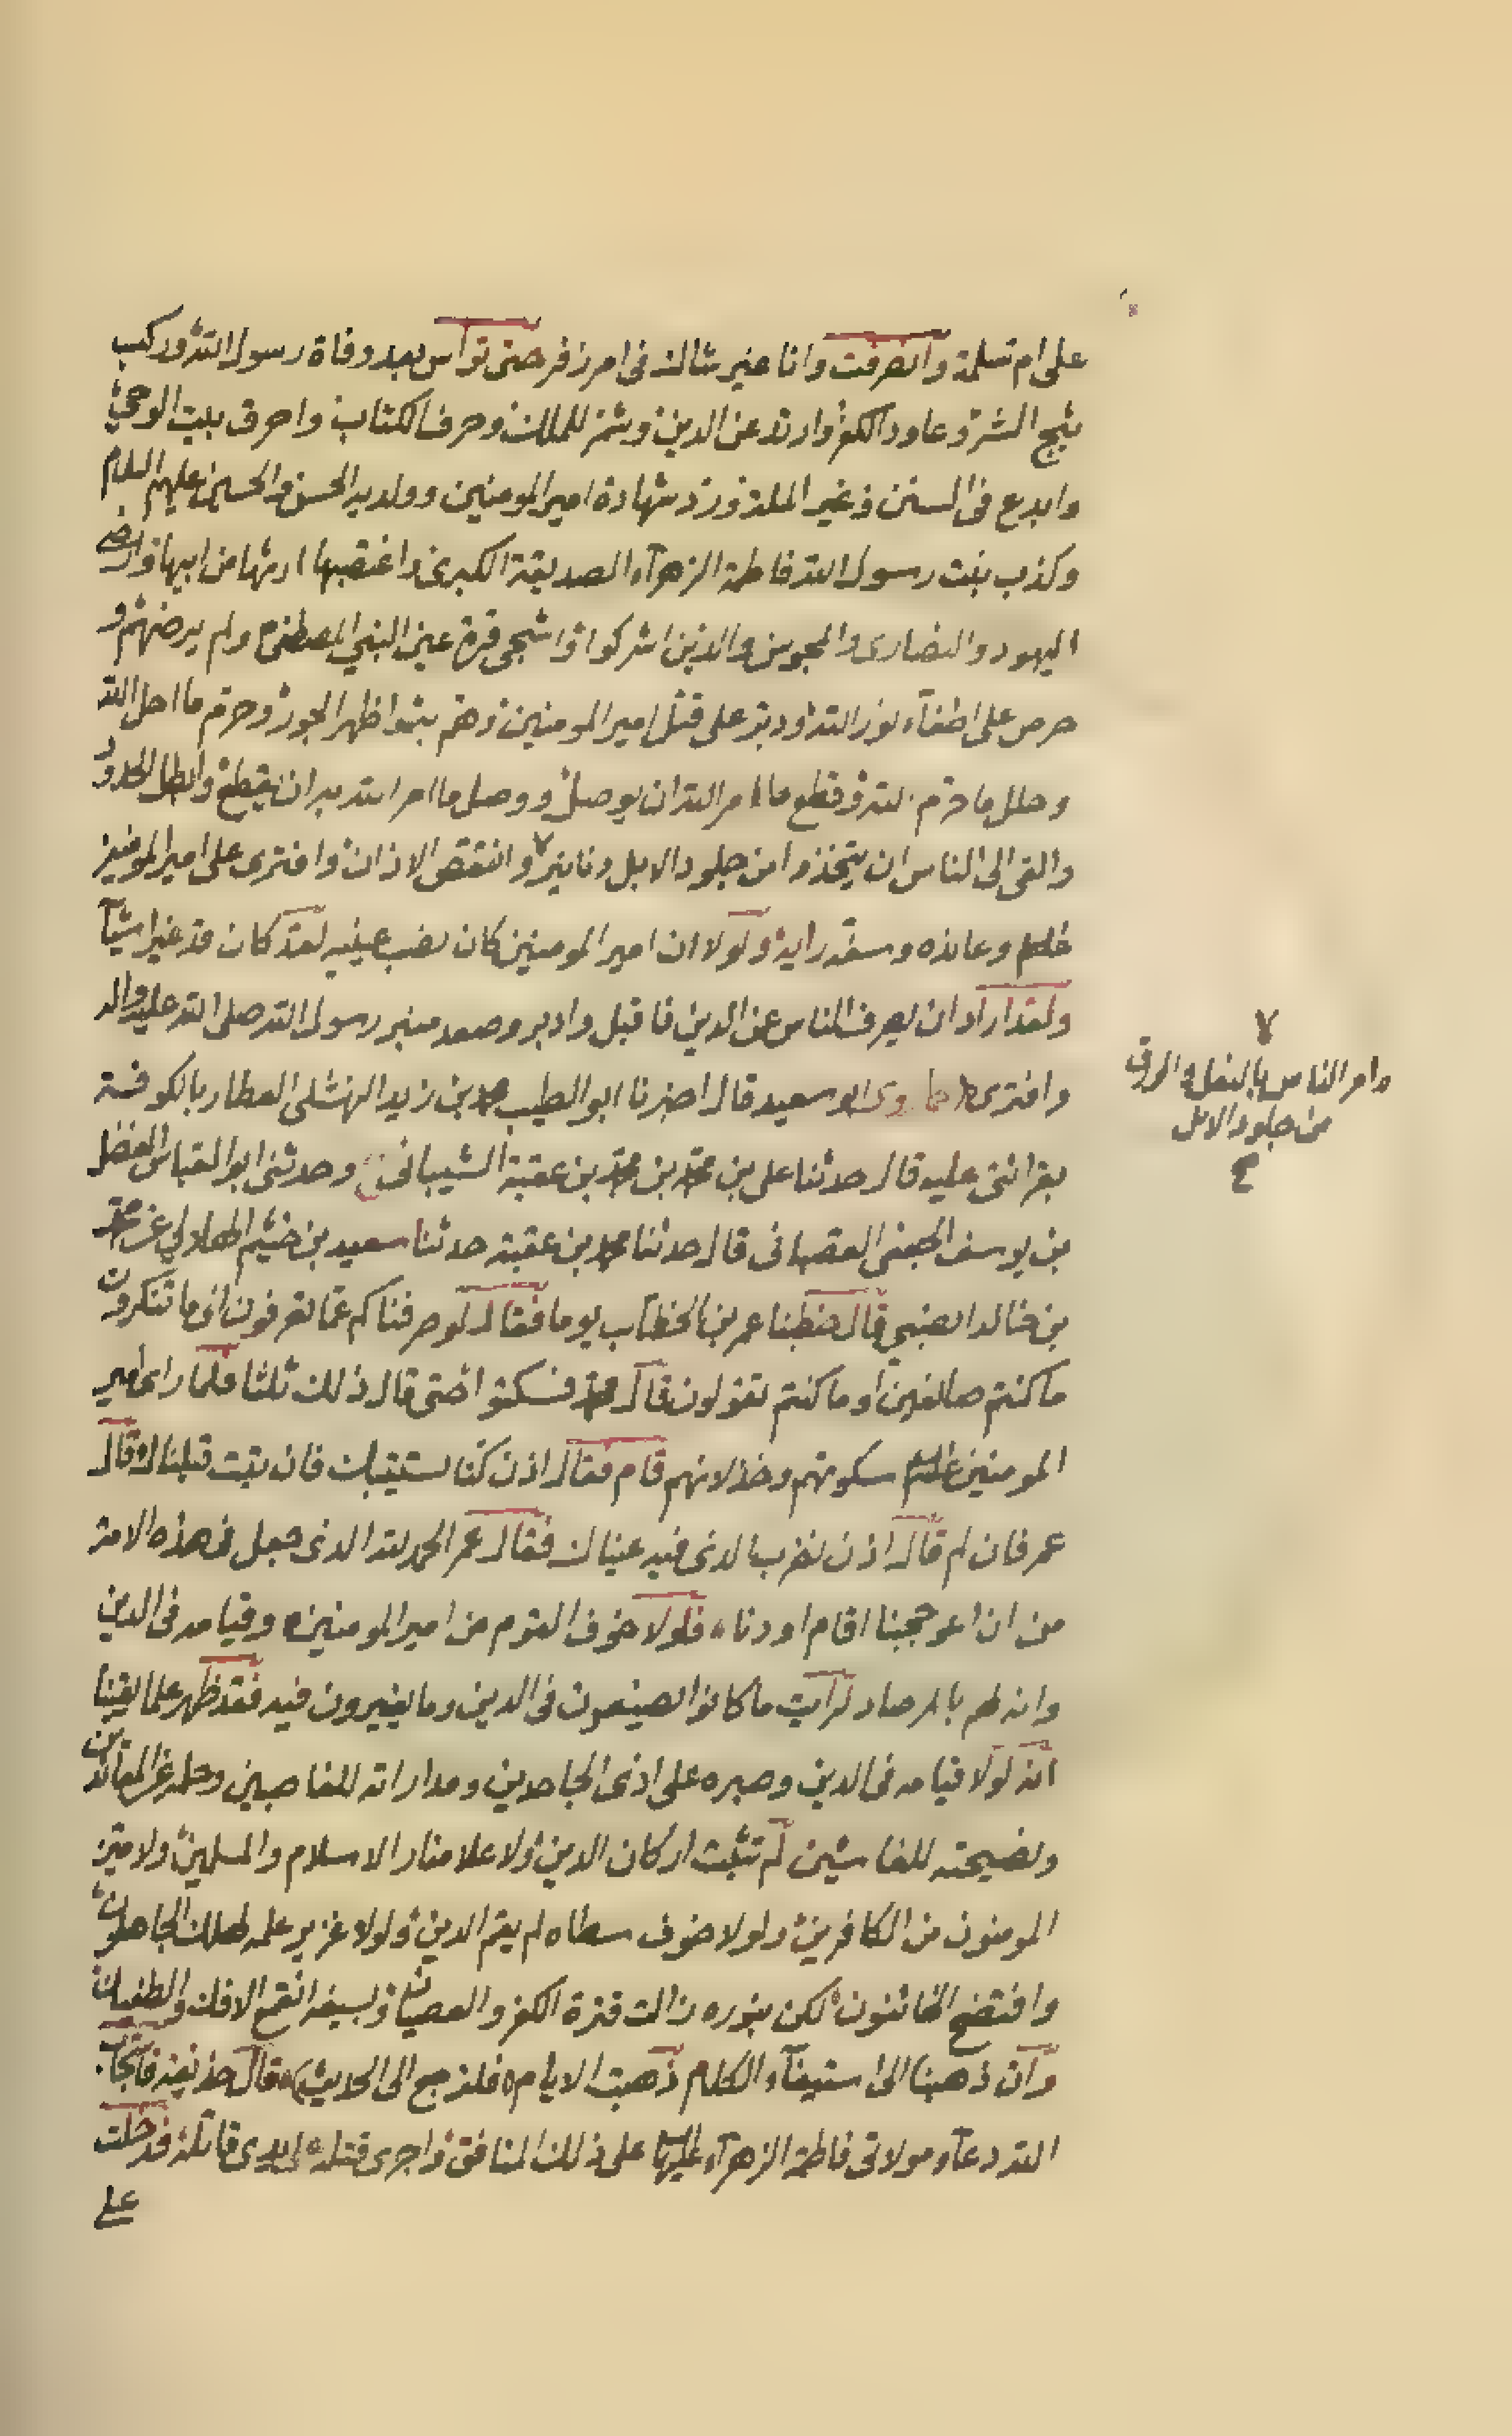 على ام سلمة وانصرفت وانا غير شاك في امر زفر حتى تراس بعد وفاة رسول الله وركب
ثبج الشر وعاود الكفر وارتد عن الدين وشمر للملك وحرف الكتاب واحرق بيت الوحي
وابدع في السنن وغير الملة ورد شهادة امير المومنين وولديه الحسن والحسين عليهم السلام
وكذب بنت رسول الله فاطمة الزهرآء الصديقة الكبرى واغتصبها ارثها من ابيها وارضى
اليهود والنصارى والمجوس والذين اشركوا واشجى قرة عين النبي المصطفى ولم يرضهم و
حرص على اطفآء نور الله ودبر على قتل امير المومنين وهم بشوا ظهر الجور وحرم ما احل الله
وحلل ما حرم الله وقطع ما امر الله ان يوصل ووصل ما امر الله به ان يقطع وابطل الحدود
والقى الى الناس ان يتخذوا من جلود الابل دنانير وانتقص الاذان وافترى على امير المومنين
وعانده وسفه رايه ولولا ان امير المومنين كان نصب عينيه لقد كان قد غير اشيآ
ولقد اراد ان يصرف الناس عن الدين فاقبل وادبر وصعد منبر رسول الله صلى الله عليه واله
وافترى كما روى ابو سعيد قال اخبرنا ابو الطيب محمد بن زيد النهشلى العطار بالكوفة
بقرائتى عليه قال حدثنا على بن محمد بن محمد بن عقبة الشيبانى وحدثنى ابو العباس الفضل
بن يوسف الجعفى القصبانى قال حدثنا محمد بن عقبة حدثنا سعيد بن خثيم الهلالي عن محمد
بن خالد الضبي قال خطبنا عمر بن الخطاب يوما فقال لو صرفناكم عما تعرفون الى ما تنكرون
ما كنتم صانعين او ما كنتم تقولون قال محمد فسكتوا حتى قال ذلك ثلثا فلما راى امير
المومنين سكوتهم وخذلانهم قام فقال اذن كنا نستتيبك فان تبت قبلناك قال
عمر فان لم قال اذن نضرب الذى فيه عيناك فقال عمر الحمد لله الذى جعل فى هذه الامة
من ان اعوججنا اقام اودنا فلولا خوف القوم من امير المومنين وقيامه فى الدين
وانه لهم بالمرصاد لرايت ما كانوا يصنعون فى الدين وما يغيرون فيه فقد ظهر علما يقينا
انه لولا قيامه فى الدين وصبره على اذى الجاحدين ومداراته للغاصبين وحلمه عن المعاندين
ونصيحته للغاشين لم تثبت اركان الدين ولا علا منار الاسلام والمسلمين ولا ميز
المومنون من الكافرين ولولا خوف سطاه لم يقم الدين ولولا غزير علمه لهلك الجاهلون
وافتضح الخائنون لكن بنوره زالت قترة الكفر والعصيان وبسيفه انقمع الافك والطغيان
وان ذهبنا الى استيفآء الكلام ذهبت الايام فلنرجع الى الحديث قال حذيفة فاستجاب
الله دعآء مولاتى فاطمة الزهرآء عليها على ذلك المنافق واجرى قتله على يدى قاتله فدخلت
على
وامر الناس بالنعل والورق
من جلود الابل